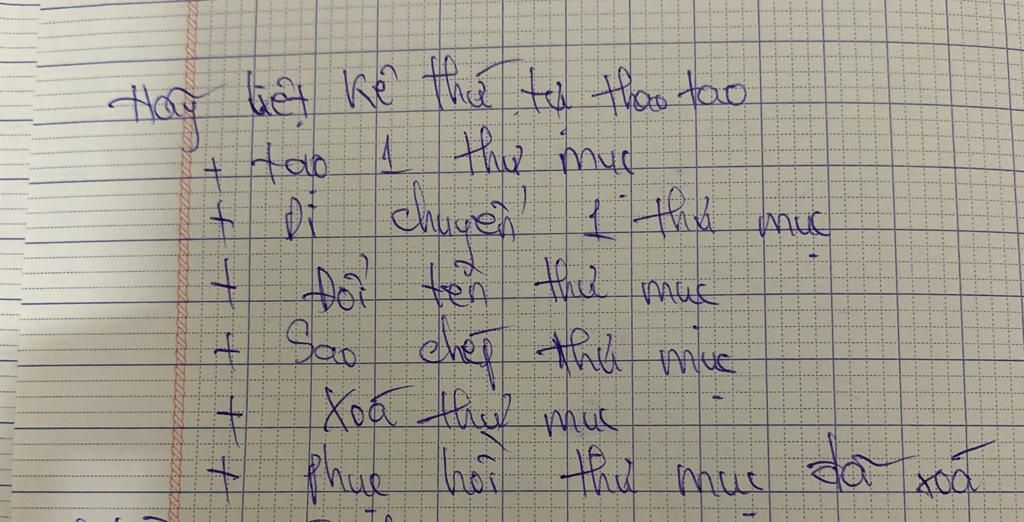 Hãy liệt kê thứ tự thao tao
+ tạo 1 thư mục
+ Di chuyển 1 thư mục
+ Đổi tên thư mục
+ Sao chép thư mục
+ Xoá thư mục
+ phục hồi thư mục đã xoá